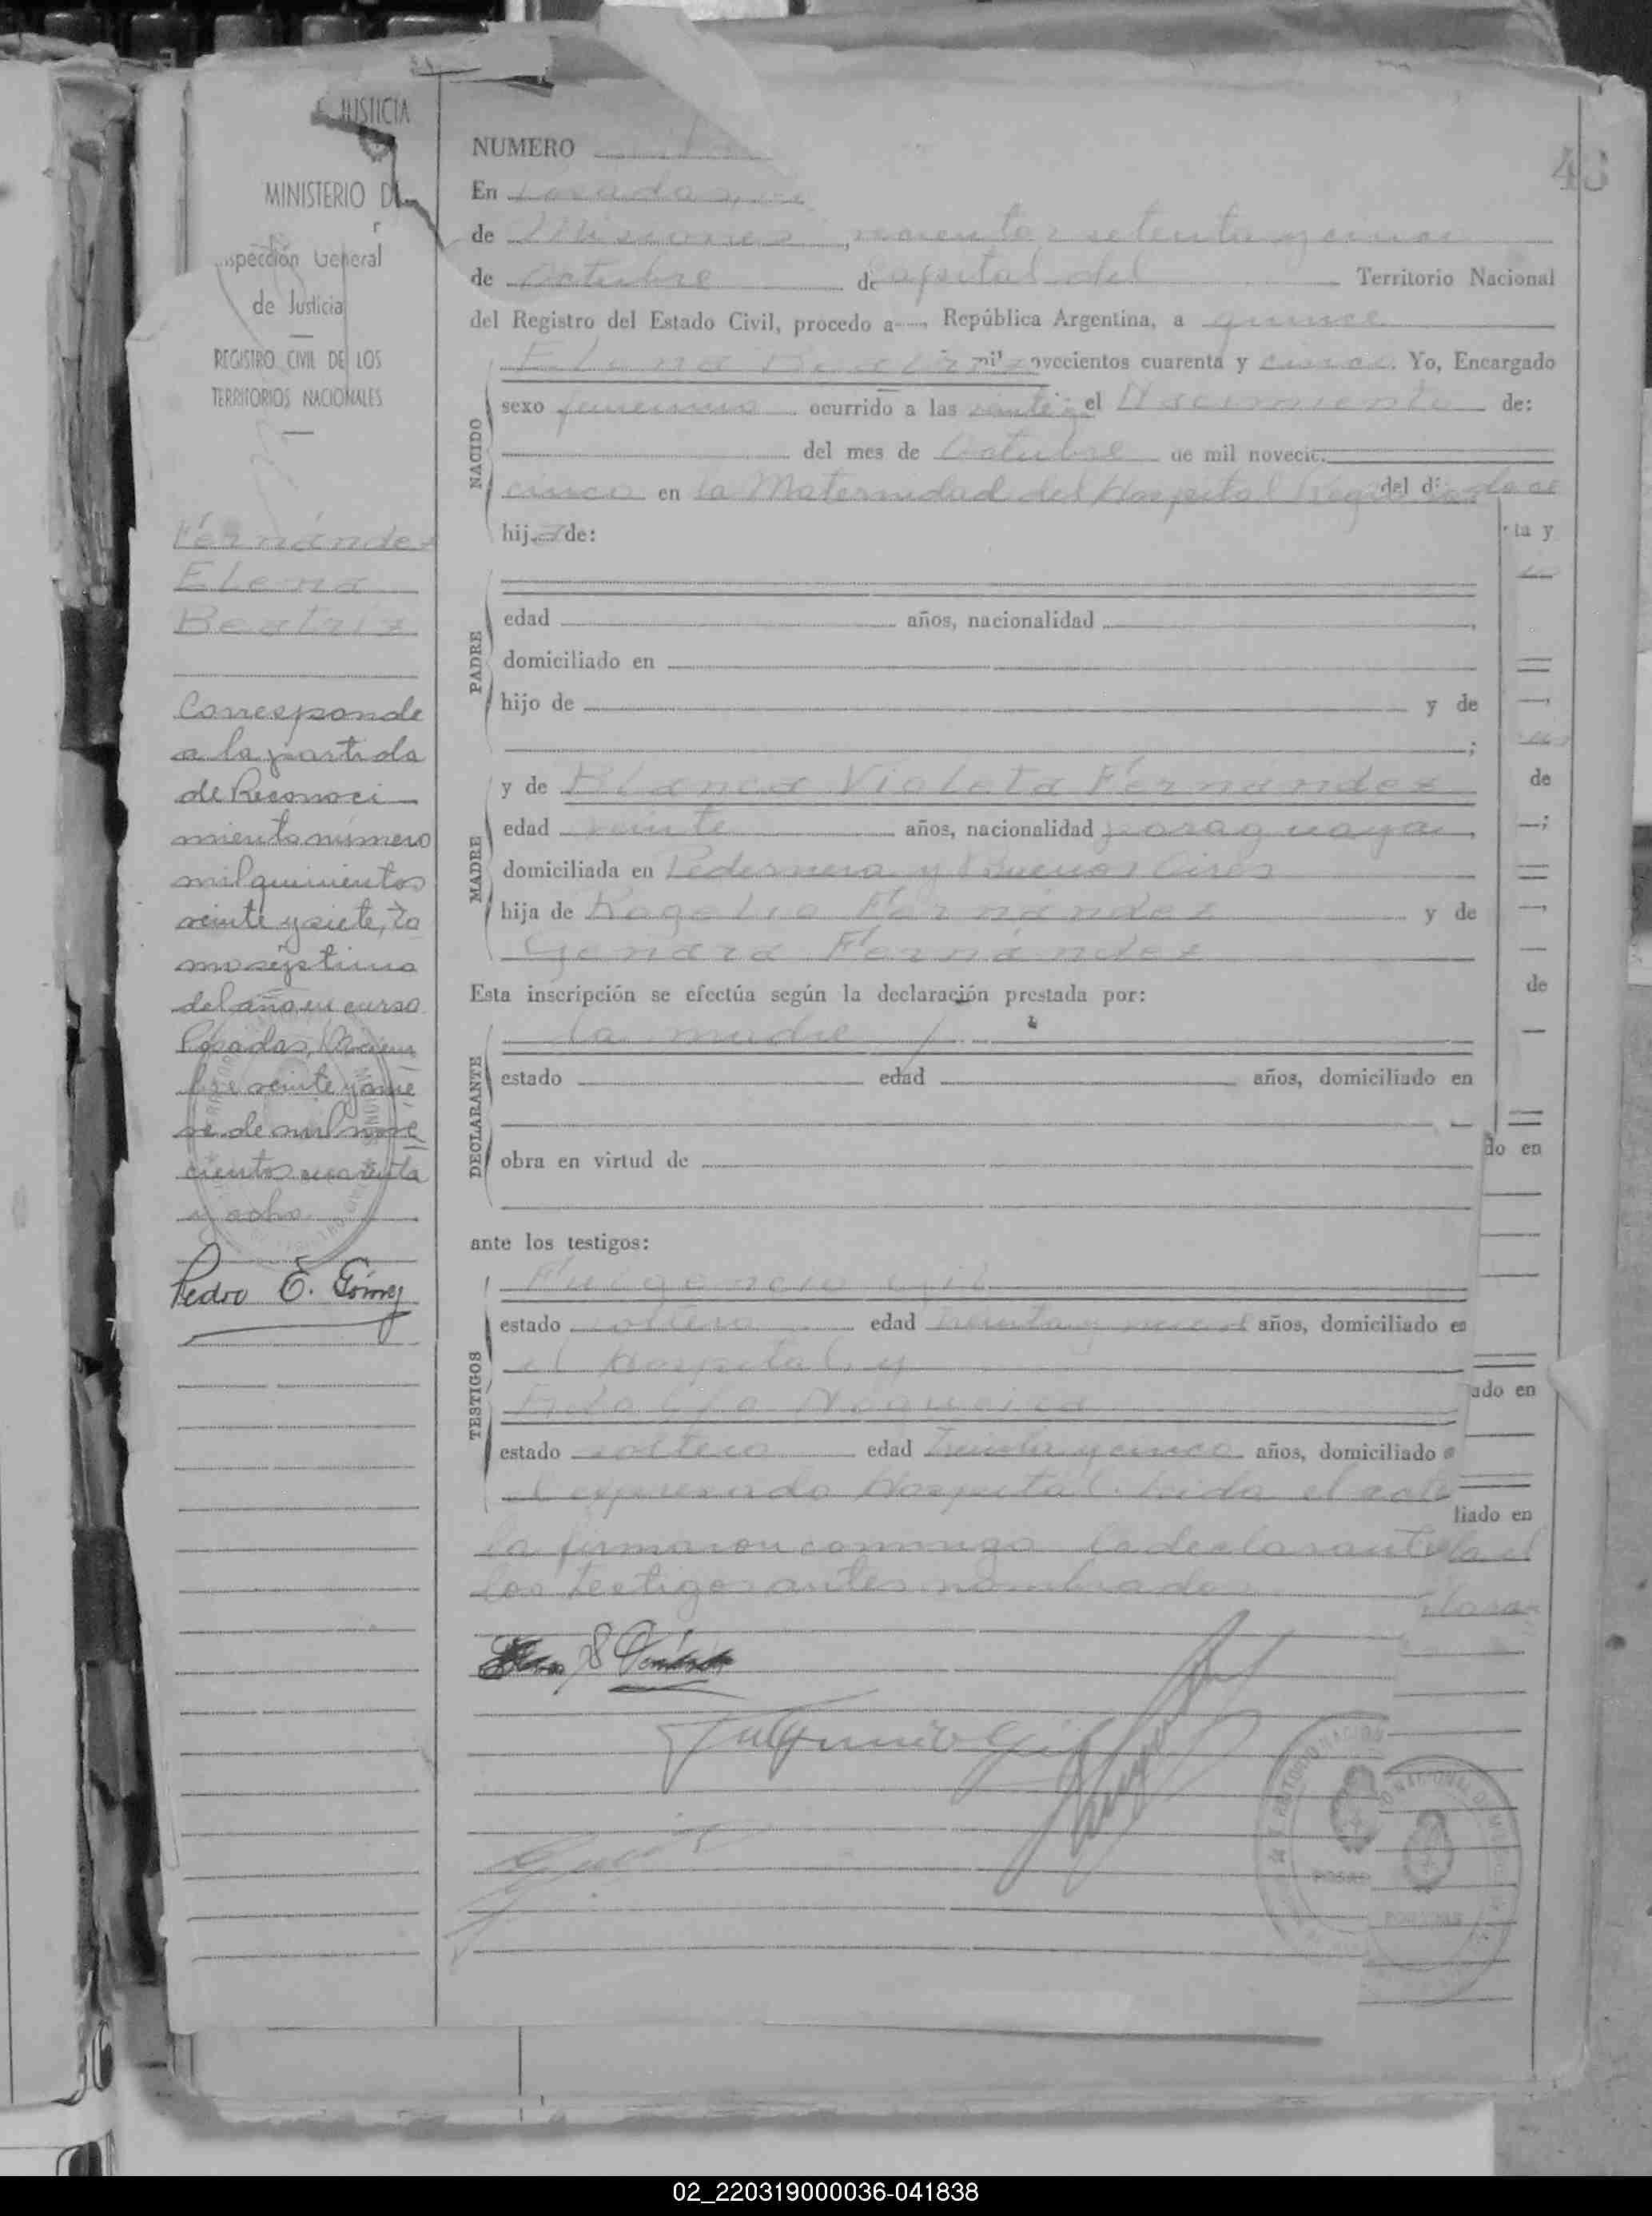 JUSTICIA
MINISTERIO D
Inspección General
de Justicia
REGISTRO CIVIL DE LOS
TERRITORIOS NACIONALES
Fernández
Elena
Beatriz
Corresponde
a la partida
de Reconoci
miento número
mil quinientos
veinte y siete, to
mo séptimo
del año en curso
Posadas,
bre veinte y nue
ve de mil nove
cientos cuarenta
y ocho.
Pedro E. Gómez
43
NUMERO
En Posadas,
de Misiones, novecientos setenta y cinco
de Octubre de Capital del Territorio Nacional
del Registro del Estado Civil, procedo a República Argentina, a quince
Elena Beatriz mil novecientos cuarenta y cinco. Yo, Encargado
NACIDO
sexo femenino ocurrido a las veinte el Nacimiento de:
del mes de Octubre de mil novecie
cinco en la Maternidad del Hospital Regional del dí doce
hija de:
ta y
PADRE
edad años, nacionalidad
domiciliado en
hijo de y de
;
MADRE
y de Blanca Violeta Fernández de
edad veinte años, nacionalidad paraguaya,
domiciliada en Pedernera y Buenos Aires
hija de Rogelio Fernández y de
Genara Fernández
Esta inscripción se efectúa según la declaración prestada por: de
DECLARANTE
la madre
estado edad años, domiciliado en
do en
obra en virtud de
ante los testigos:
TESTIGOS
Fulgencio Gil
estado soltero edad treinta y nueve años, domiciliado en
el Hospital, y
Rodolfo Nogueira
ado en
estado soltero edad treinta y cinco años, domiciliado e
el expresado Hospital. Leida el acta
liado en
la firmaron conmigo la declarante
los testigos antes nombrados
Fulgencio Gil
POSADAS
02_220319000036-041838